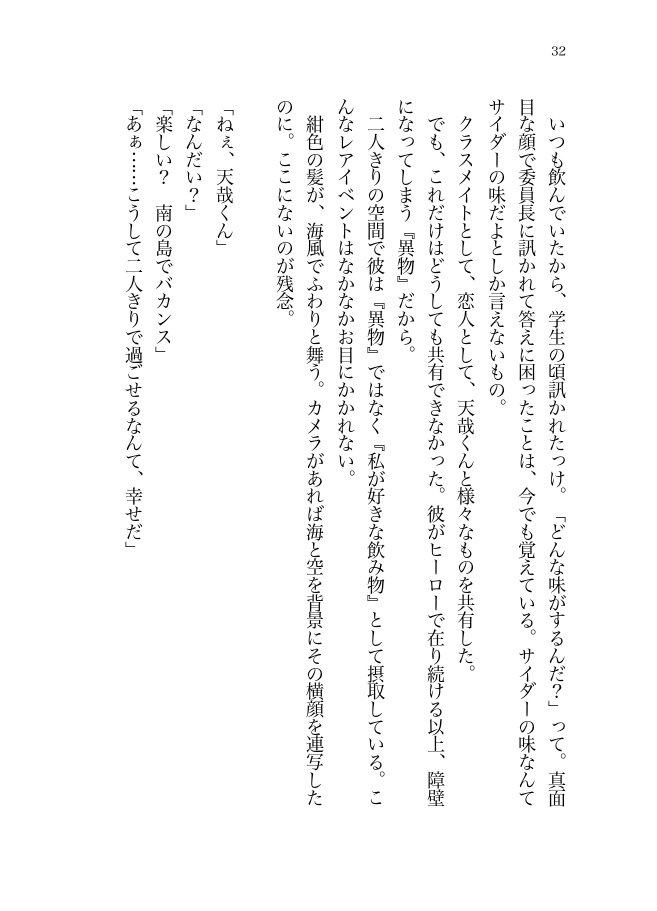 32
　いつも飲んでいたから、学生の頃訊かれたっけ。「どんな味がするんだ？」って。真面
目な顔で委員長に訊かれて答えに困ったことは、今でも覚えている。サイダーの味なんて
サイダーの味だよとしか言えないもの。
　クラスメイトとして、恋人として、天哉くんと様々なものを共有した。
　でも、これだけはどうしても共有できなかった。彼がヒーローで在り続ける以上、障壁
になってしまう『異物』だから。
　二人きりの空間で彼は『異物』ではなく『私が好きな飲み物』として摂取している。こ
んなレアイベントはなかなかお目にかかれない。
　紺色の髪が、海風でふわりと舞う。カメラがあれば海と空を背景にその横顔を連写した
のに。ここにないのが残念。
「ねぇ、天哉くん」
「なんだい？」
「楽しい？　南の島でバカンス」
「あぁ……こうして二人きりで過ごせるなんて、幸せだ」